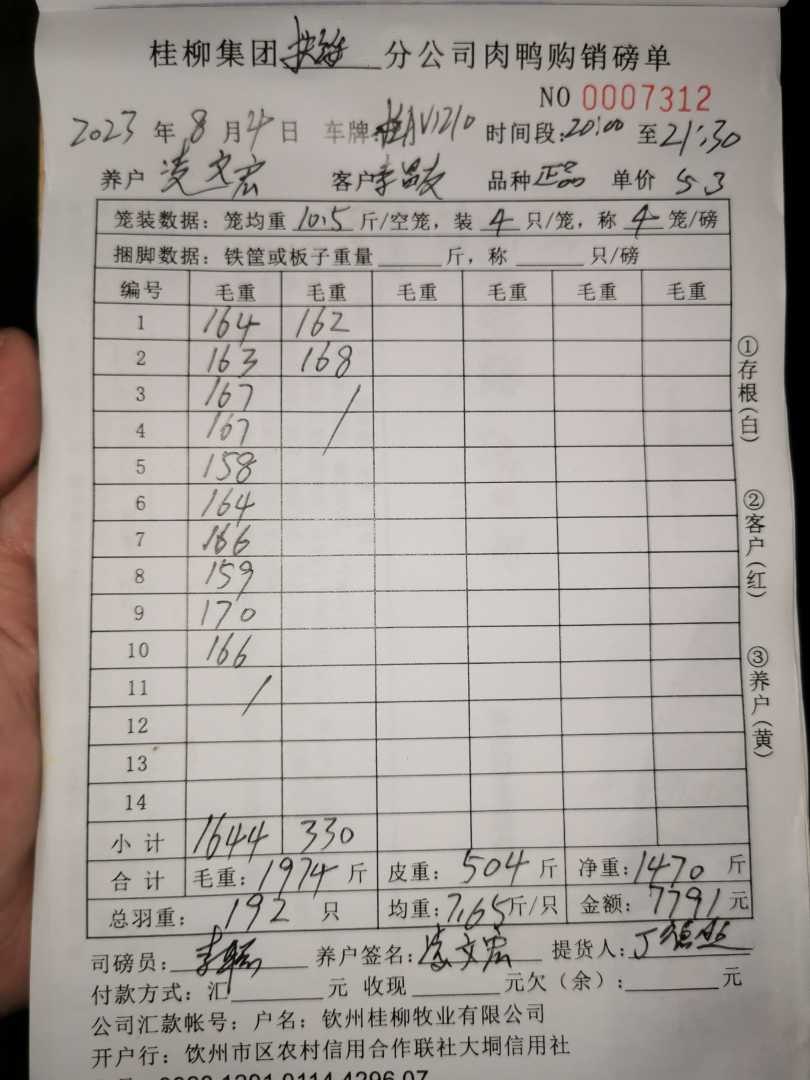 桂柳集团 分公司肉鸭购销磅单
NO 0007312
2023 年 8 月 4 日 车牌:桂AV1210 时间段:20:00 至 21:30
养户 凌文宏 客户 李昌友 品种 正品 单价 5.3
笼装数据:笼均重 10.5 斤/空笼,装 4 只/笼,称 4 笼/磅
捆脚数据:铁筐或板子重量 斤,称 只/磅
编号 毛重 毛重 毛重 毛重 毛重 毛重
1 164 162
2 163 168
3 167 /
4 167
5 158
6 164
7 166
8 159
9 170
10 166
11 /
12
13
14
小计 1644 330
合计 毛重:1974 斤 皮重:504 斤 净重:1470 斤
总羽重:192 只 均重:7.65 斤/只 金额:7791 元
司磅员: 养户签名:凌文宏 提货人:
付款方式:汇 元 收现 元欠(余): 元
公司汇款帐号:户名:钦州桂柳牧业有限公司
开户行:钦州市区农村信用合作联社大垌信用社
①存根(白)
②客户(红)
③养户(黄)